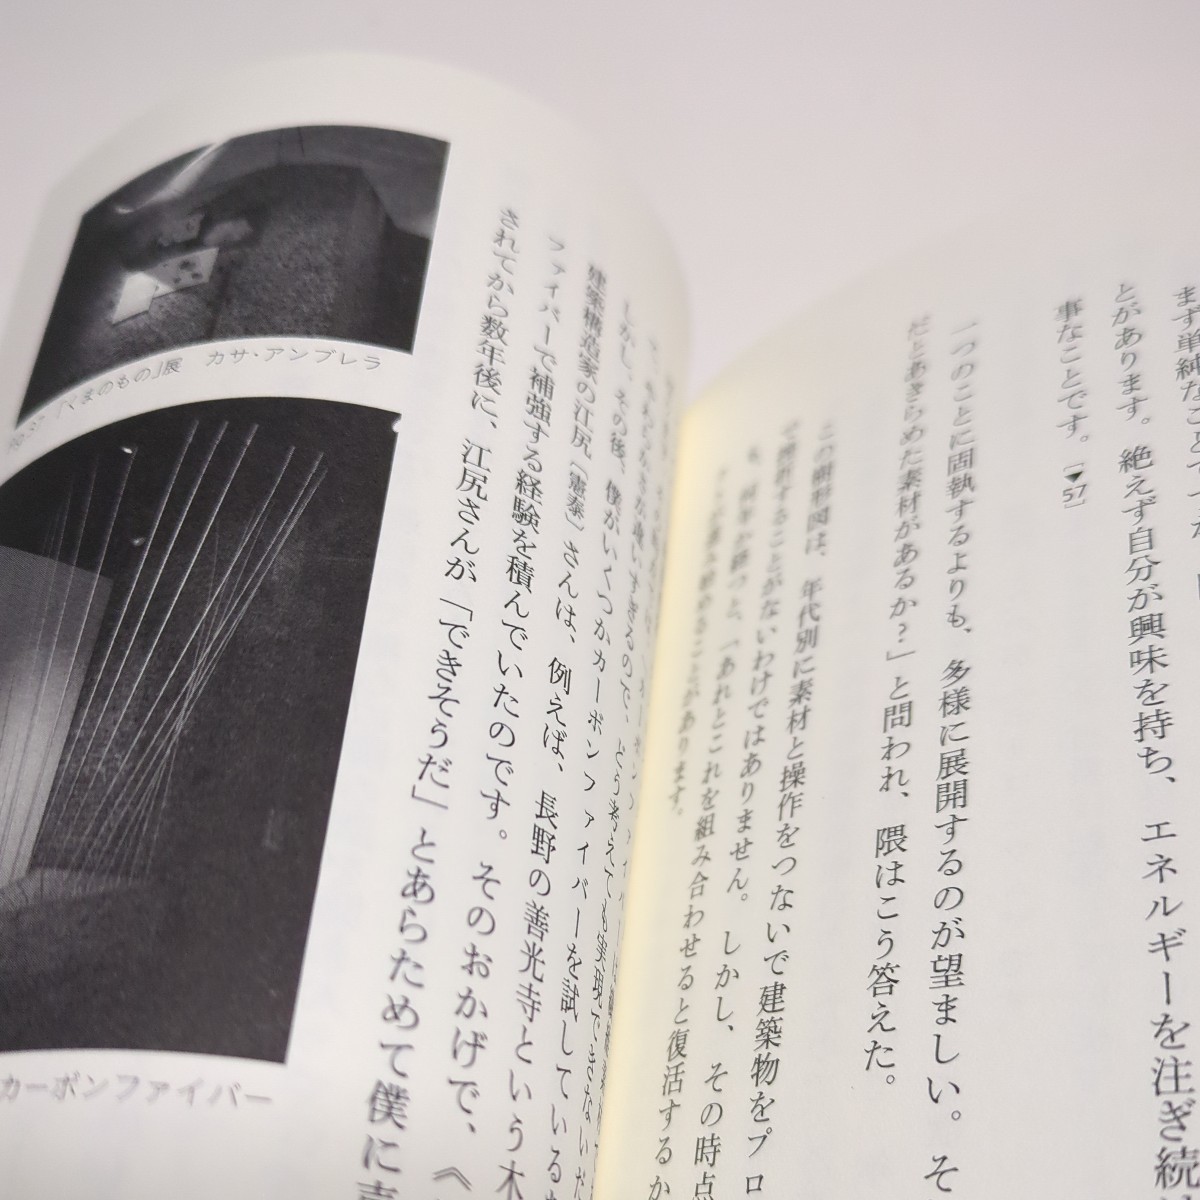 まず単純なこと
とがあります。絶えず自分が興味を持ち、エネルギーを注ぎ続
事なことです。［▼57］
一つのことに固執するよりも、多様に展開するのが望ましい。そ
だとあきらめた素材があるか？」と問われ、隈はこう答えた。
この樹形図は、年代別に素材と操作をつないで建築物をプロ
で挫折することがないわけではありません。しかし、その時点
も、何年か経つと、「あれとこれを組み合わせると復活するか
ことがあります。
しかし、その後、僕がいくつかカーボンファイバーを試している
建築構造家の江尻［憲泰］さんは、例えば、長野の善光寺という木
ファイバーで補強する経験を積んでいたのです。そのおかげで、《
されてから数年後に、江尻さんが「できそうだ」とあらためて僕に
「くまのもの」展　カサ・アンブレラ
カーボンファイバー